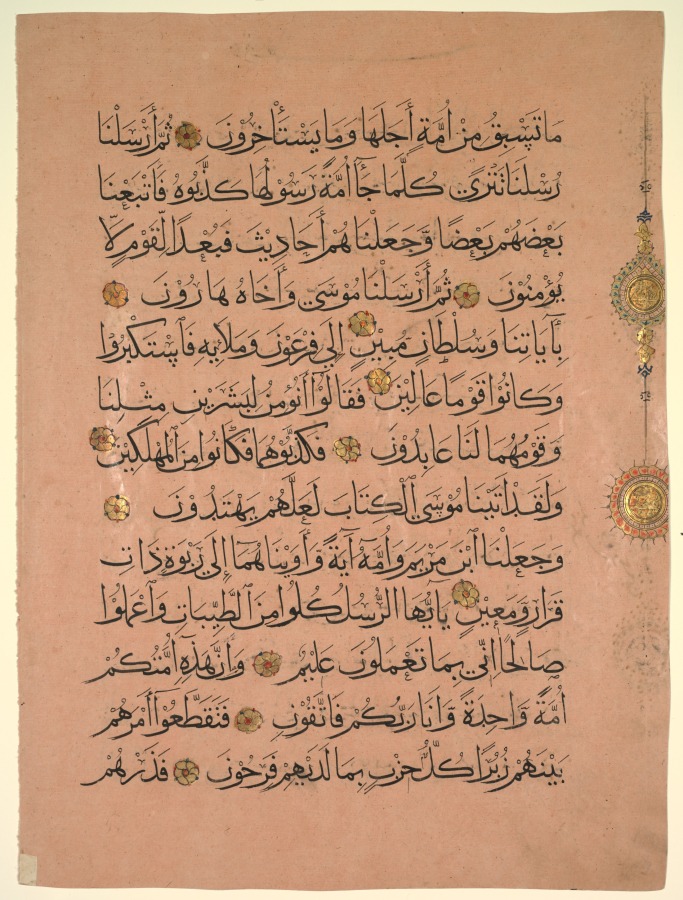 مَا تَسْبِقُ مِنْ أُمَّةٍ أَجَلَهَا وَمَا يَسْتَأْخِرُونَ ثُمَّ أَرْسَلْنَا
رُسُلَنَا تَتْرَىٰ كُلَّمَا جَآءَ أُمَّةً رَسُولُهَا كَذَّبُوهُ فَأَتْبَعْنَا
بَعْضَهُمْ بَعْضًا وَّجَعَلْنَاهُمْ أَحَادِيثَ فَبُعْدًا لِّقَوْمٍ لَّا
يُؤْمِنُونَ ثُمَّ أَرْسَلْنَا مُوسَىٰ وَأَخَاهُ هَارُونَ
بِآيَاتِنَا وَسُلْطَانٍ مُبِينٍ إِلَىٰ فِرْعَوْنَ وَمَلَائِهِ فَاسْتَكْبَرُوا
وَكَانُوا قَوْمًا عَالِينَ فَقَالُوٓا أَنُؤْمِنُ لِبَشَرَيْنِ مِثْلِنَا
وَقَوْمُهُمَا لَنَا عَابِدُونَ فَكَذَّبُوهُمَا فَكَانُوا مِنَ الْمُهْلَكِينَ
وَلَقَدْ آتَيْنَا مُوسَى الْكِتَابَ لَعَلَّهُمْ يَهْتَدُونَ
وَجَعَلْنَا ابْنَ مَرْيَمَ وَأُمَّهُ آيَةً وَّآوَيْنَاهُمَآ إِلَىٰ رَبْوَةٍ ذَاتِ
قَرَارٍ وَّمَعِينٍ يَآ أَيُّهَا الرُّسُلُ كُلُوا مِنَ الطَّيِّبَاتِ وَاعْمَلُوا
صَالِحًا إِنِّي بِمَا تَعْمَلُونَ عَلِيمٌ وَأَنَّ هَٰذِهِ أُمَّتُكُمْ
أُمَّةً وَّاحِدَةً وَّأَنَا رَبُّكُمْ فَاتَّقُونِ فَتَقَطَّعُوٓا أَمْرَهُمْ
بَيْنَهُمْ زُبُرًا كُلُّ حِزْبٍ بِمَا لَدَيْهِمْ فَرِحُونَ فَذَرْهُمْ